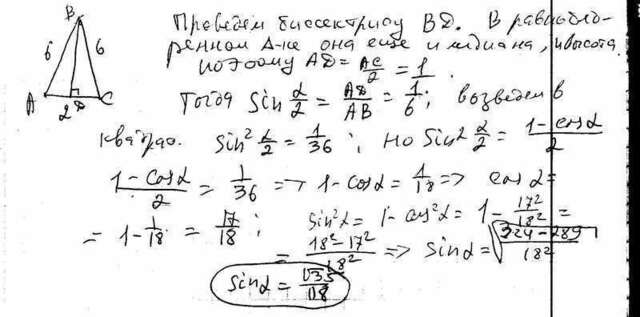 B
6 6
A D C
2
Проведем биссектрису BD. В равнобед-
ренном Δ-ке она еще и медиана, и высота.
поэтому AD = AC/2 = 1.
Тогда sin α/2 = AD/AB = 1/6; возведем в
квадрат. sin² α/2 = 1/36; но sin² α/2 = (1-cosα)/2
(1-cosα)/2 = 1/36 => 1-cosα = 1/18 => cosα =
= 1-1/18 = 17/18; sin²α = 1-cos²α = 1-17²/18² =
= (18²-17²)/18² => sinα = √((324-289)/18²)
sinα = √35/18